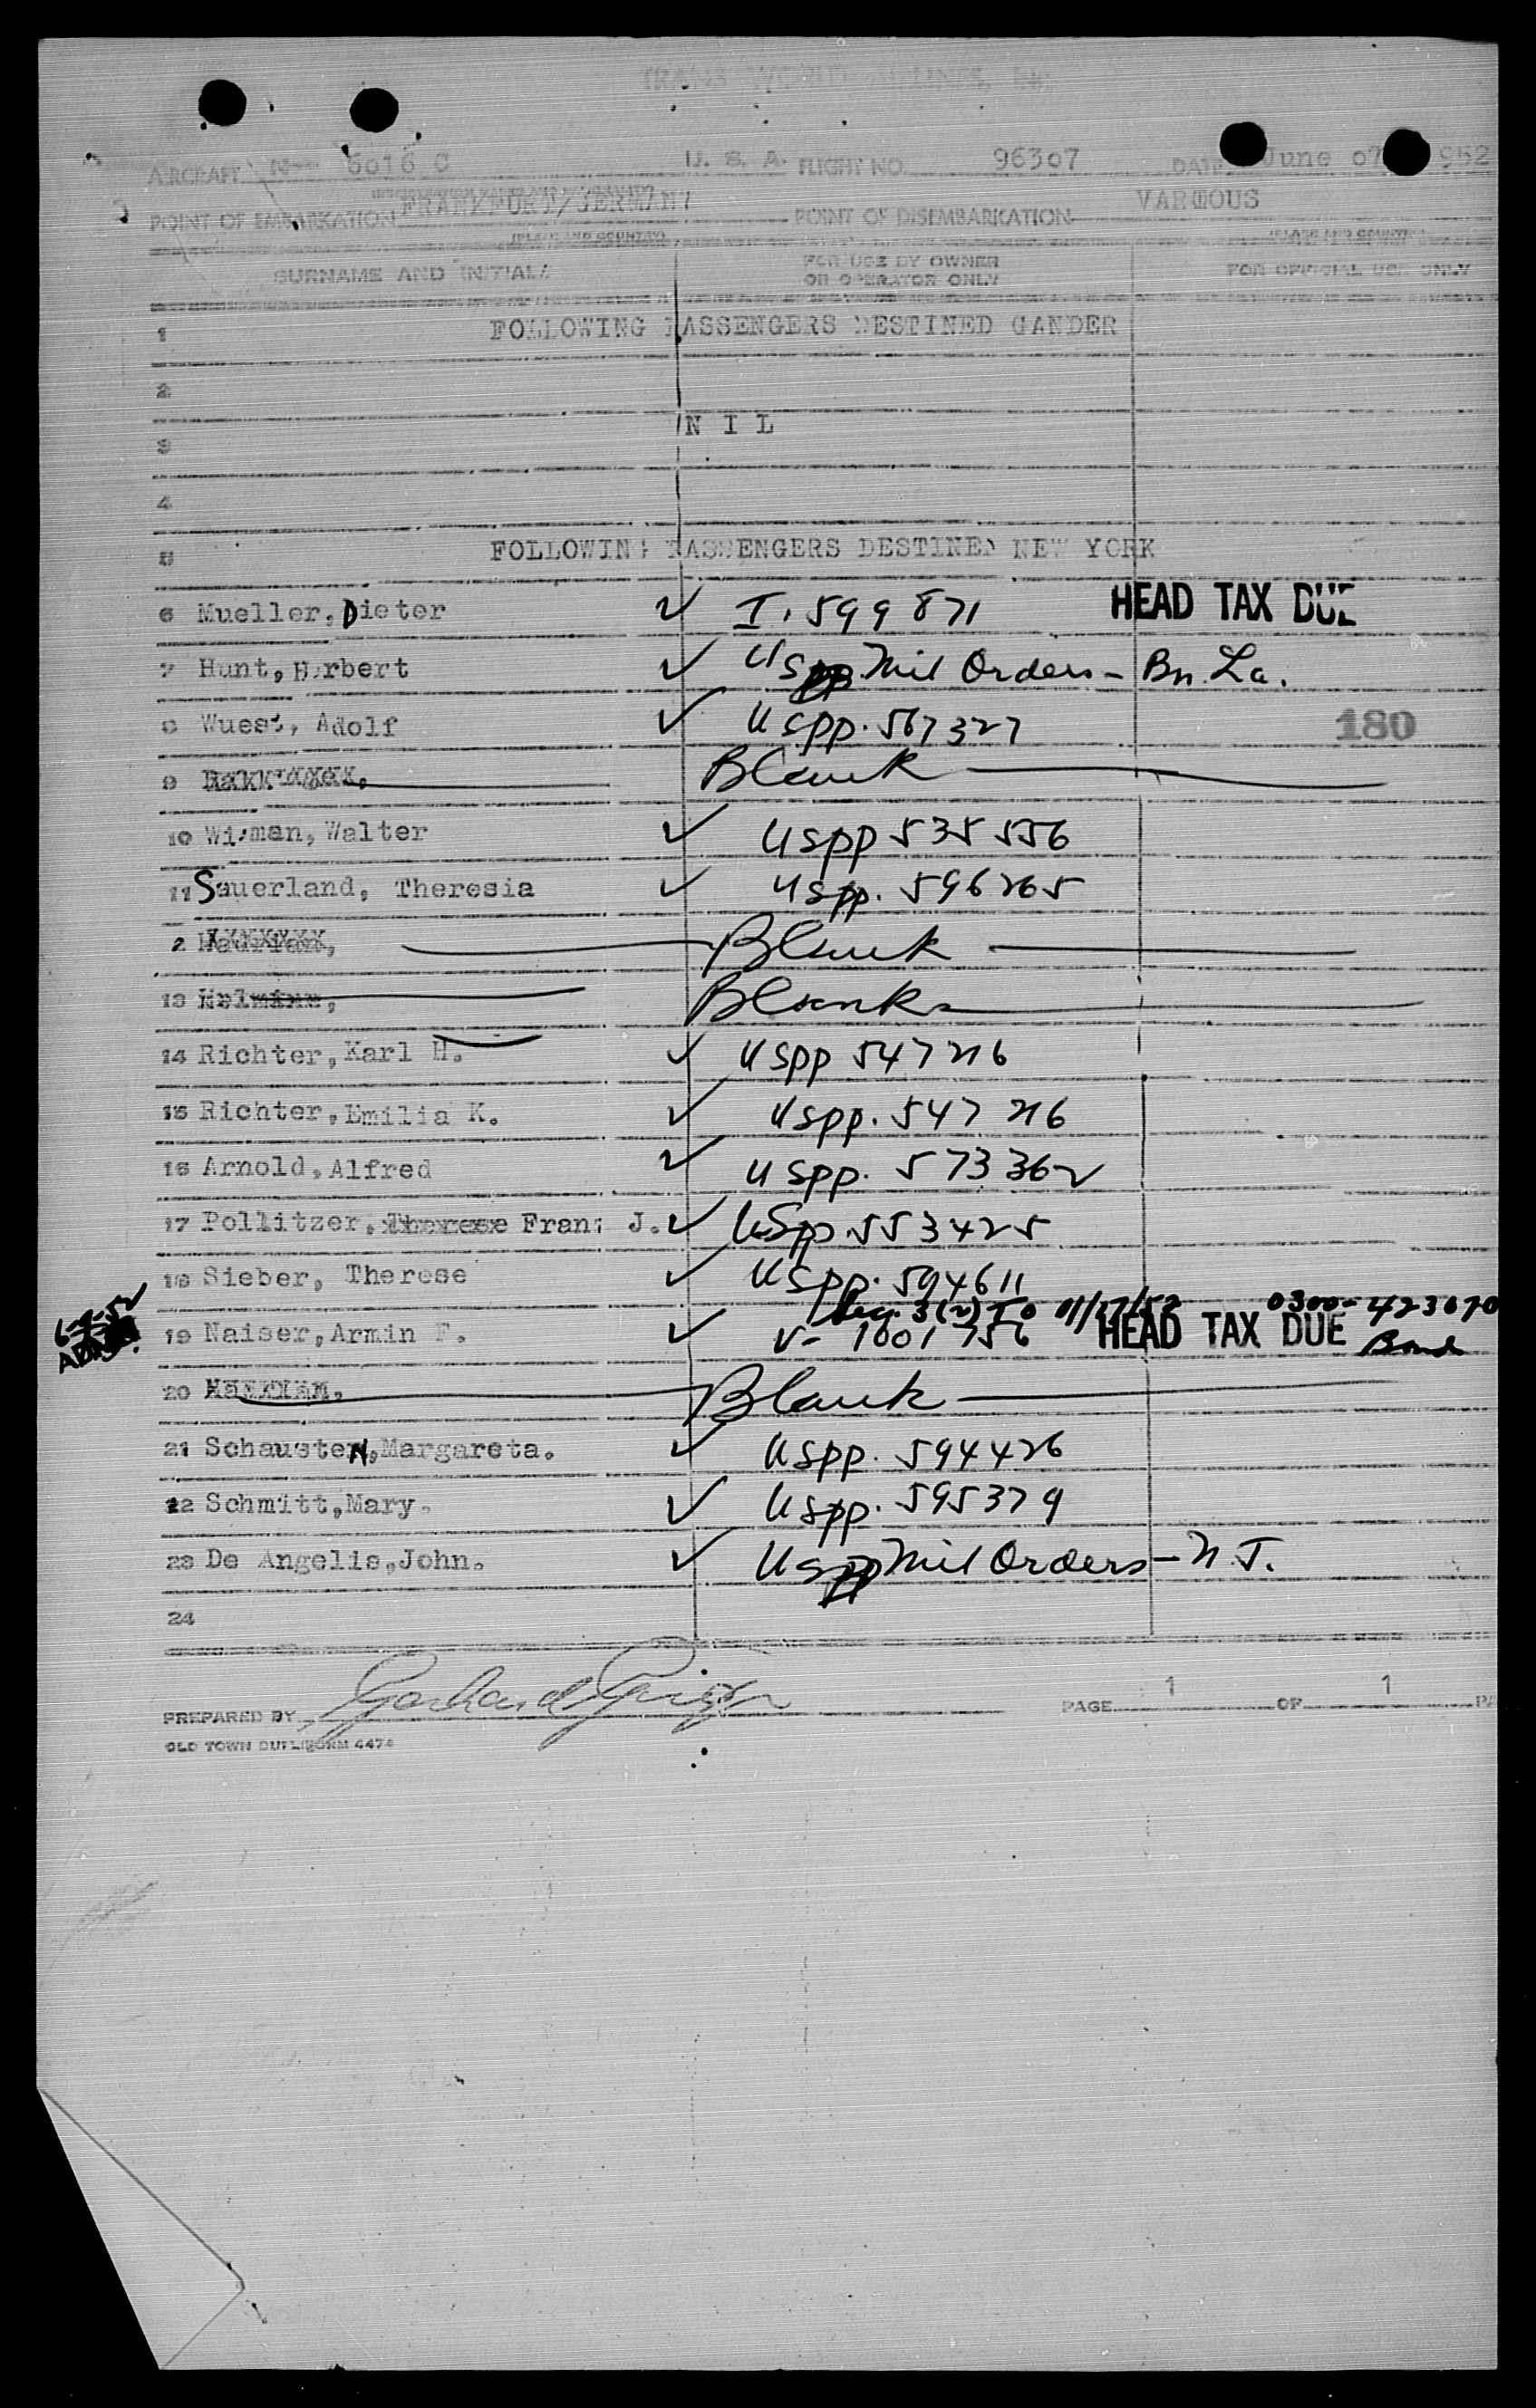 TRANS WORLD AIRLINES, Inc.
AIRCRAFT N 6016 C U. S. A. FLIGHT NO. 96307 DATE June 07 1952
POINT OF EMBARKATION FRANKFURT/GERMANY POINT OF DISEMBARKATION VARIOUS
(PLACE AND COUNTRY) (PLACE AND COUNTRY)
SURNAME AND INITIALS FOR USE BY OWNER OR OPERATOR ONLY FOR OFFICIAL USE ONLY
1 FOLLOWING PASSENGERS DESTINED GANDER
2
3 N I L
4
5 FOLLOWING PASSENGERS DESTINED NEW YORK
6 Mueller, Dieter ✓ I. 599871 HEAD TAX DUE
7 Hunt, Herbert ✓ US Mil Orders - Bn. La.
8 Wuest, Adolf ✓ USpp. 567327 180
9 Blank
10 Walter ✓ USpp 535556
11 Sauerland, Theresia ✓ USpp. 596265
2 Blank
13 Blank
14 Richter, Karl H. ✓ USpp 547216
15 Richter, Emilia K. ✓ USpp. 547216
16 Arnold, Alfred ✓ USpp. 573362
17 Pollitzer, Therese Franz J. ✓ USpp. 553425
18 Sieber, Therese ✓ USpp. 594611
Sec. 3(2) To 01/27/52 0300-423670
6-8-52
19 Naiser, Armin F. ✓ V- 1001756 HEAD TAX DUE Bond
20 Blank
21 Schausten, Margareta. ✓ USpp. 594426
22 Schmitt, Mary. ✓ USpp. 595379
23 De Angelis, John. ✓ US Mil Orders - N.J.
24
PREPARED BY PAGE 1 OF 1 PA
OLD TOWN DUPLIFORM 4474